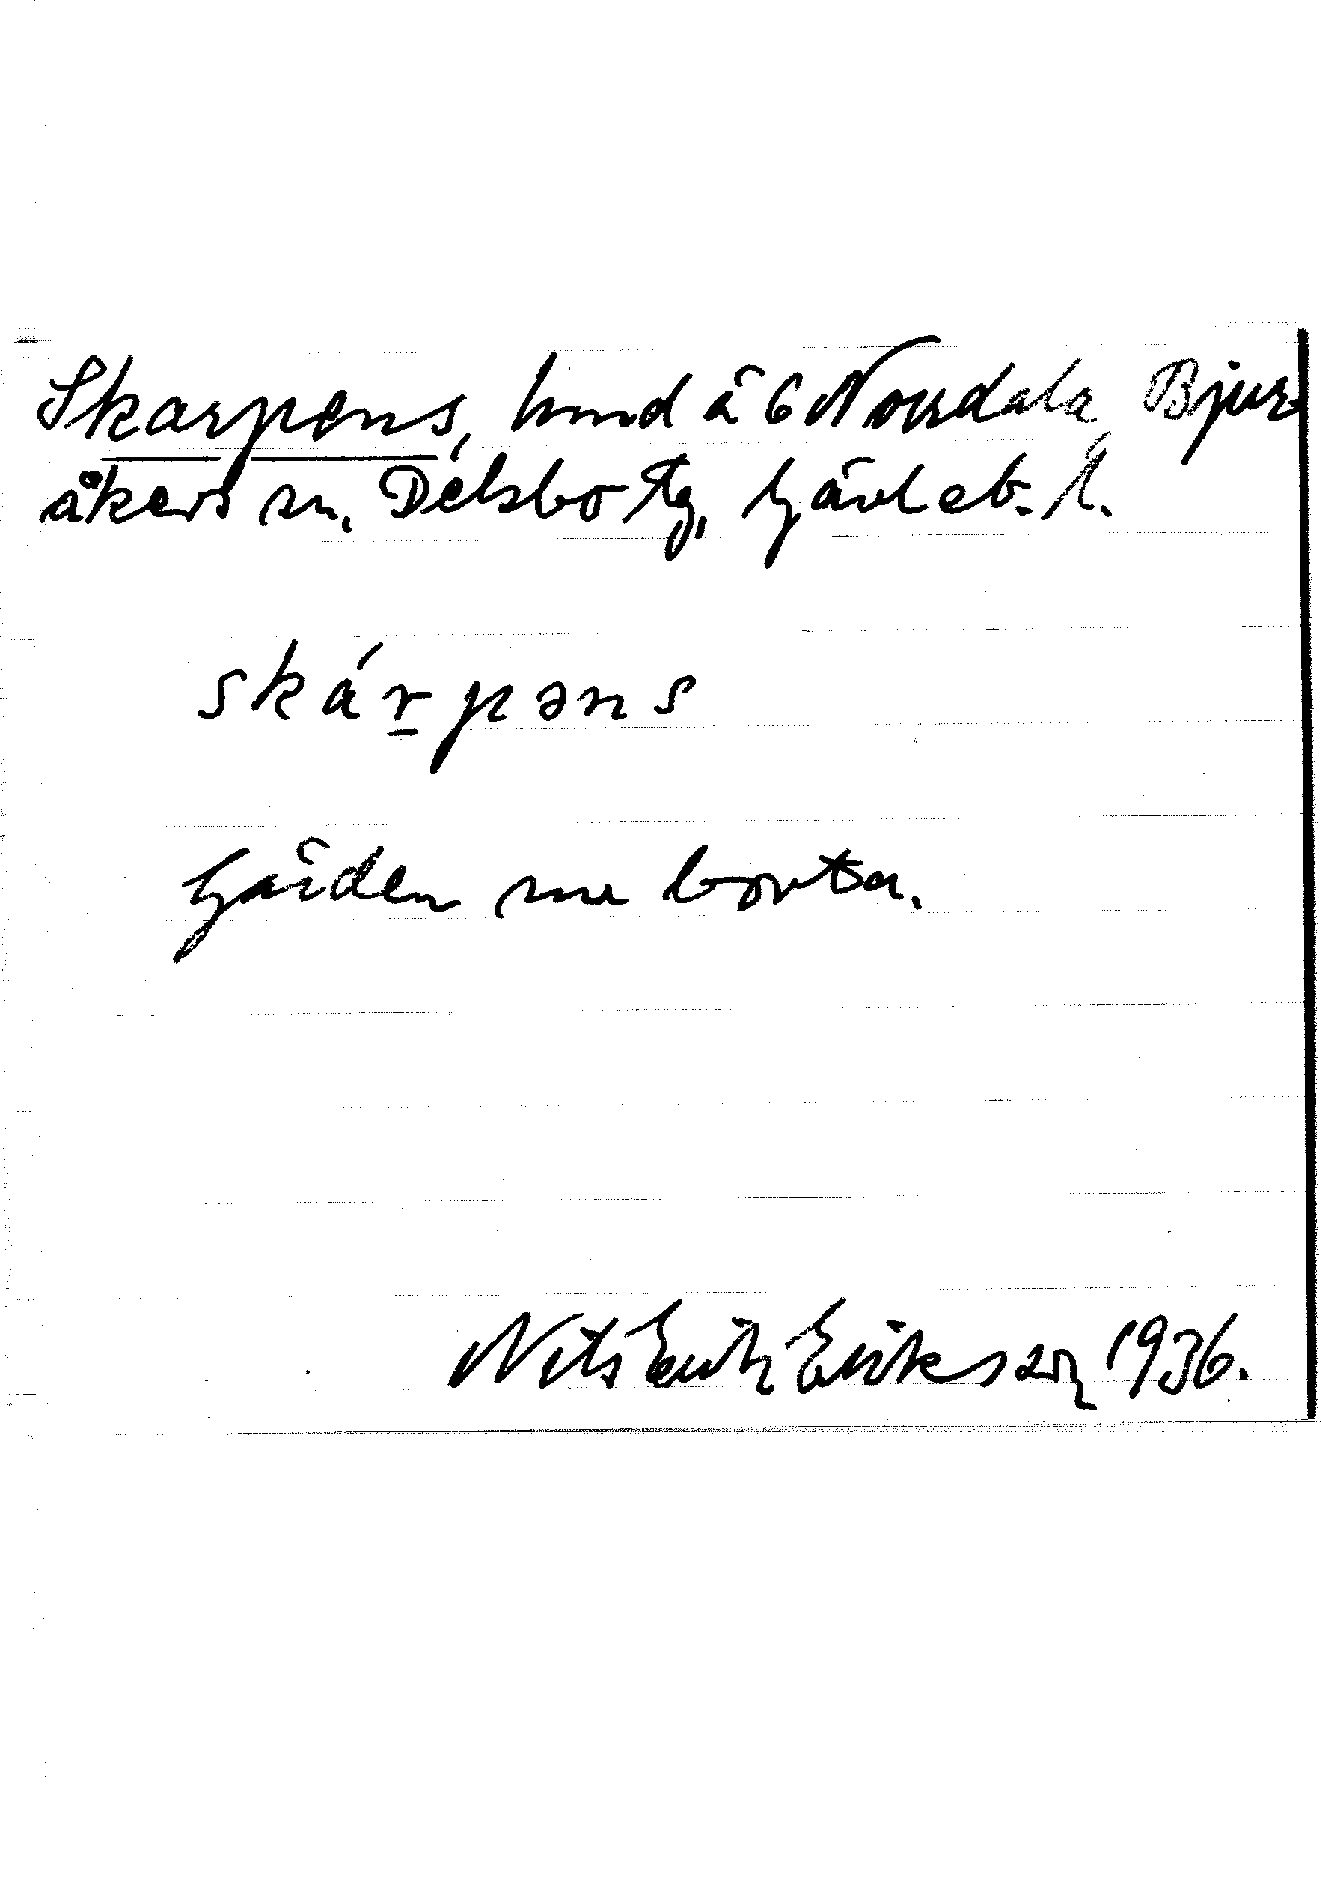 Skarpens, hmd å 6 Norrdala Bjur-
åkers sn, Delsbo tg, Gävleb. l.
skárpəns
Gården nu borta.
Nils Erik Eriksson 1936.